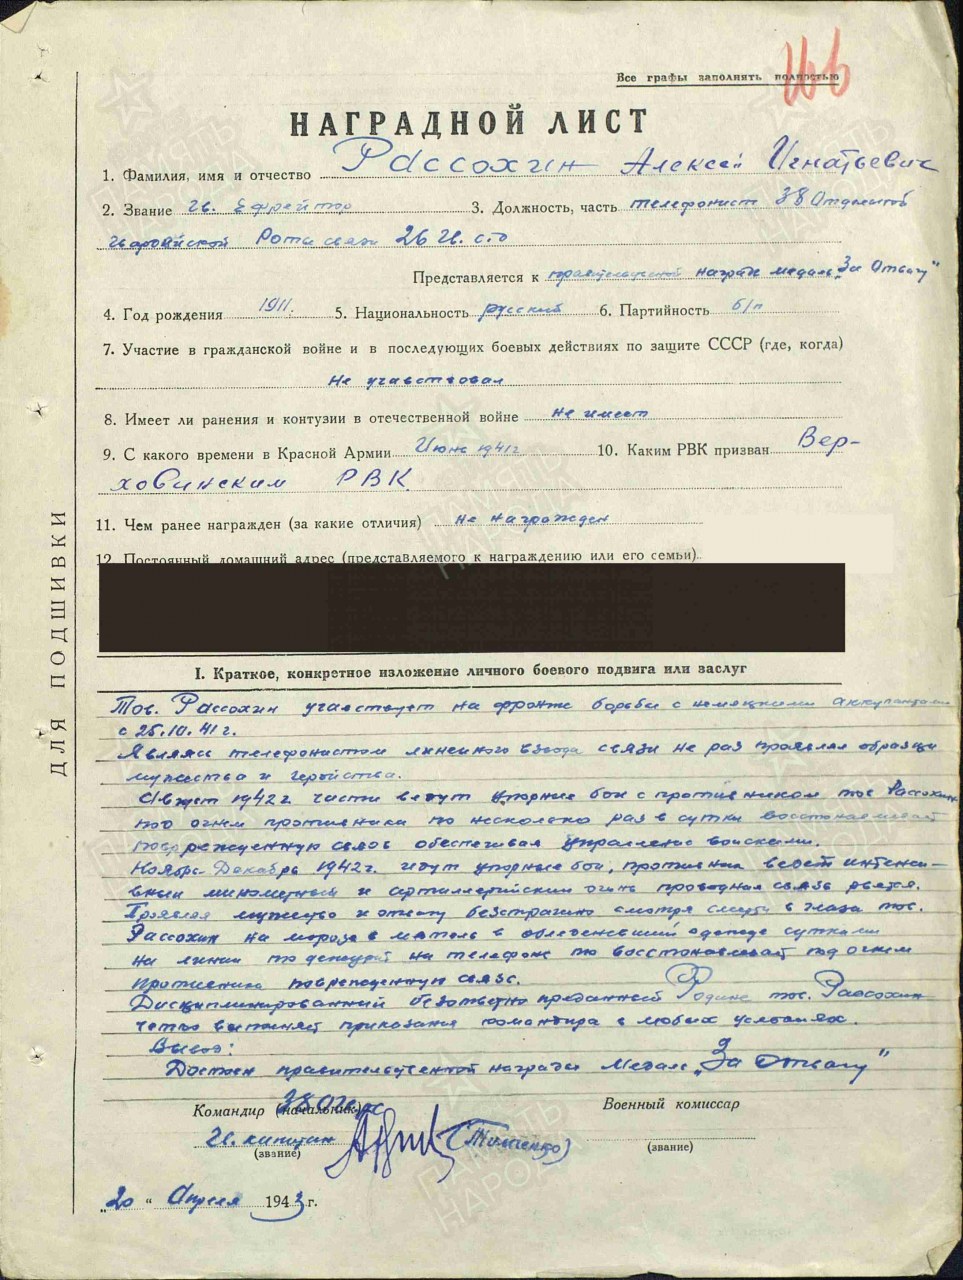 Все графы заполнять полностью
166
НАГРАДНОЙ ЛИСТ
1. Фамилия, имя и отчество Рассохин Алексей Игнатьевич
2. Звание гв. Ефрейтор 3. Должность, часть телефонист 38 Отдельной
гвардейской Роты связи 26 гв. с.д
Представляется к правительственной награде медаль "За Отвагу"
4. Год рождения 1911. 5. Национальность русский 6. Партийность б/п
7. Участие в гражданской войне и в последующих боевых действиях по защите СССР (где, когда)
Не учавствовал
8. Имеет ли ранения и контузии в отечественной войне не имеет
9. С какого времени в Красной Армии Июнь 1941г 10. Каким РВК призван Вер-
ховинским РВК
11. Чем ранее награжден (за какие отличия) не награжден
12. Постоянный домашний адрес (представляемого к награждению или его семьи)
I. Краткое, конкретное изложение личного боевого подвига или заслуг
Тов. Рассохин учавствует на фронте борьбы с немецкими аккупантами
с 25.10.41г.
Являясь телефонистом линейного взвода связи не раз проявлял образцы
мужества и геройства.
Август 1942г части ведут упорные бои с противником тов Рассохин
под огнем противника по несколько раз в сутки восстонавливает
поврежденную связь обеспечивая управление войсками.
Ноябрь-Декабрь 1942г. идут упорные бои, противник ведет интенси-
вный минометный и артиллерийский огонь проводная связь рвется.
Проявляя мужество и отвагу безстрашно смотря смерти в глаза тов.
Рассохин на морозе в метель в обледеневшей одежде сутками
на линии то дежурит на телефоне то восстонавливает под огнем
противника поврежденную связь.
Дисциплинированный беззаветно преданный Родине тов. Рассохин
четко выполняет приказания командира в любых условиях.
Вывод:
Достоен правительственной награды Медаль "За Отвагу"
Командир (начальник) 38 ОГвРС
Военный комиссар
Гв. капитан (Тимченко)
(звание) (звание)
"20" Апреля 1943 г.
ДЛЯ ПОДШИВКИ
ПАМЯТЬ НАРОДА